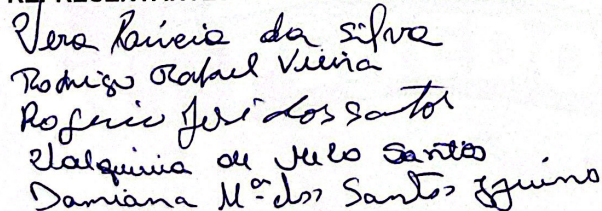 Vera Lúcia da Silva
Rodrigo Rafael Vieira
Rogerio José dos Santos
Valquiria de Melo Santos
Damiana Mª dos Santos